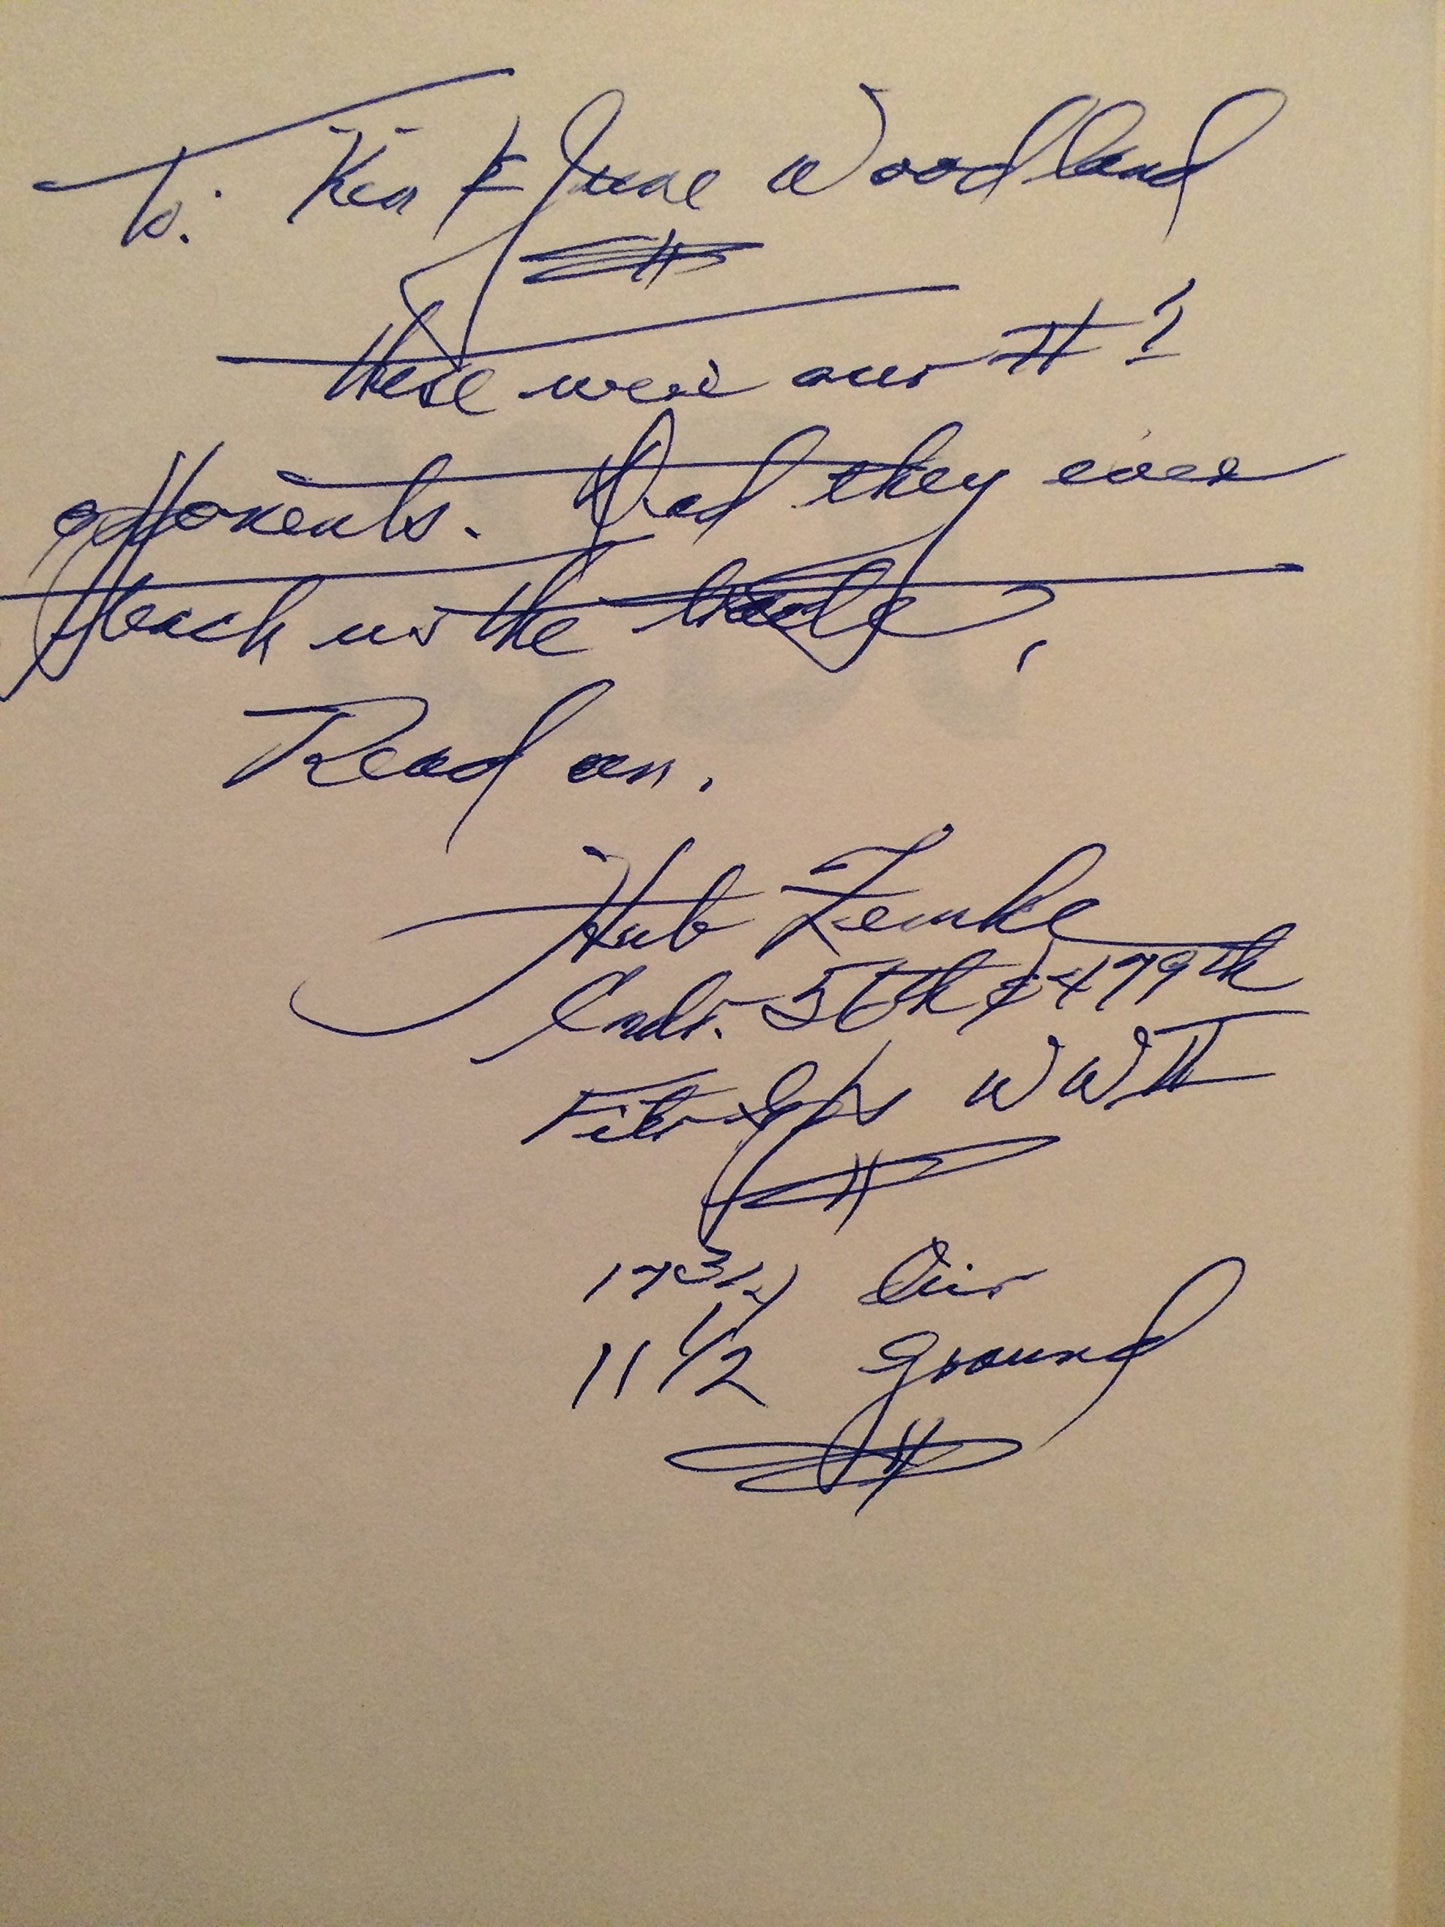 To: Ken & June Woodland
These were our # 1
opponents. Did they ever
teach us the trade,
Read on.
Hub Zemke
Cmdr. 56th & 479th
Fitr Gps WWII
17 3/4 Air
11 1/2 ground